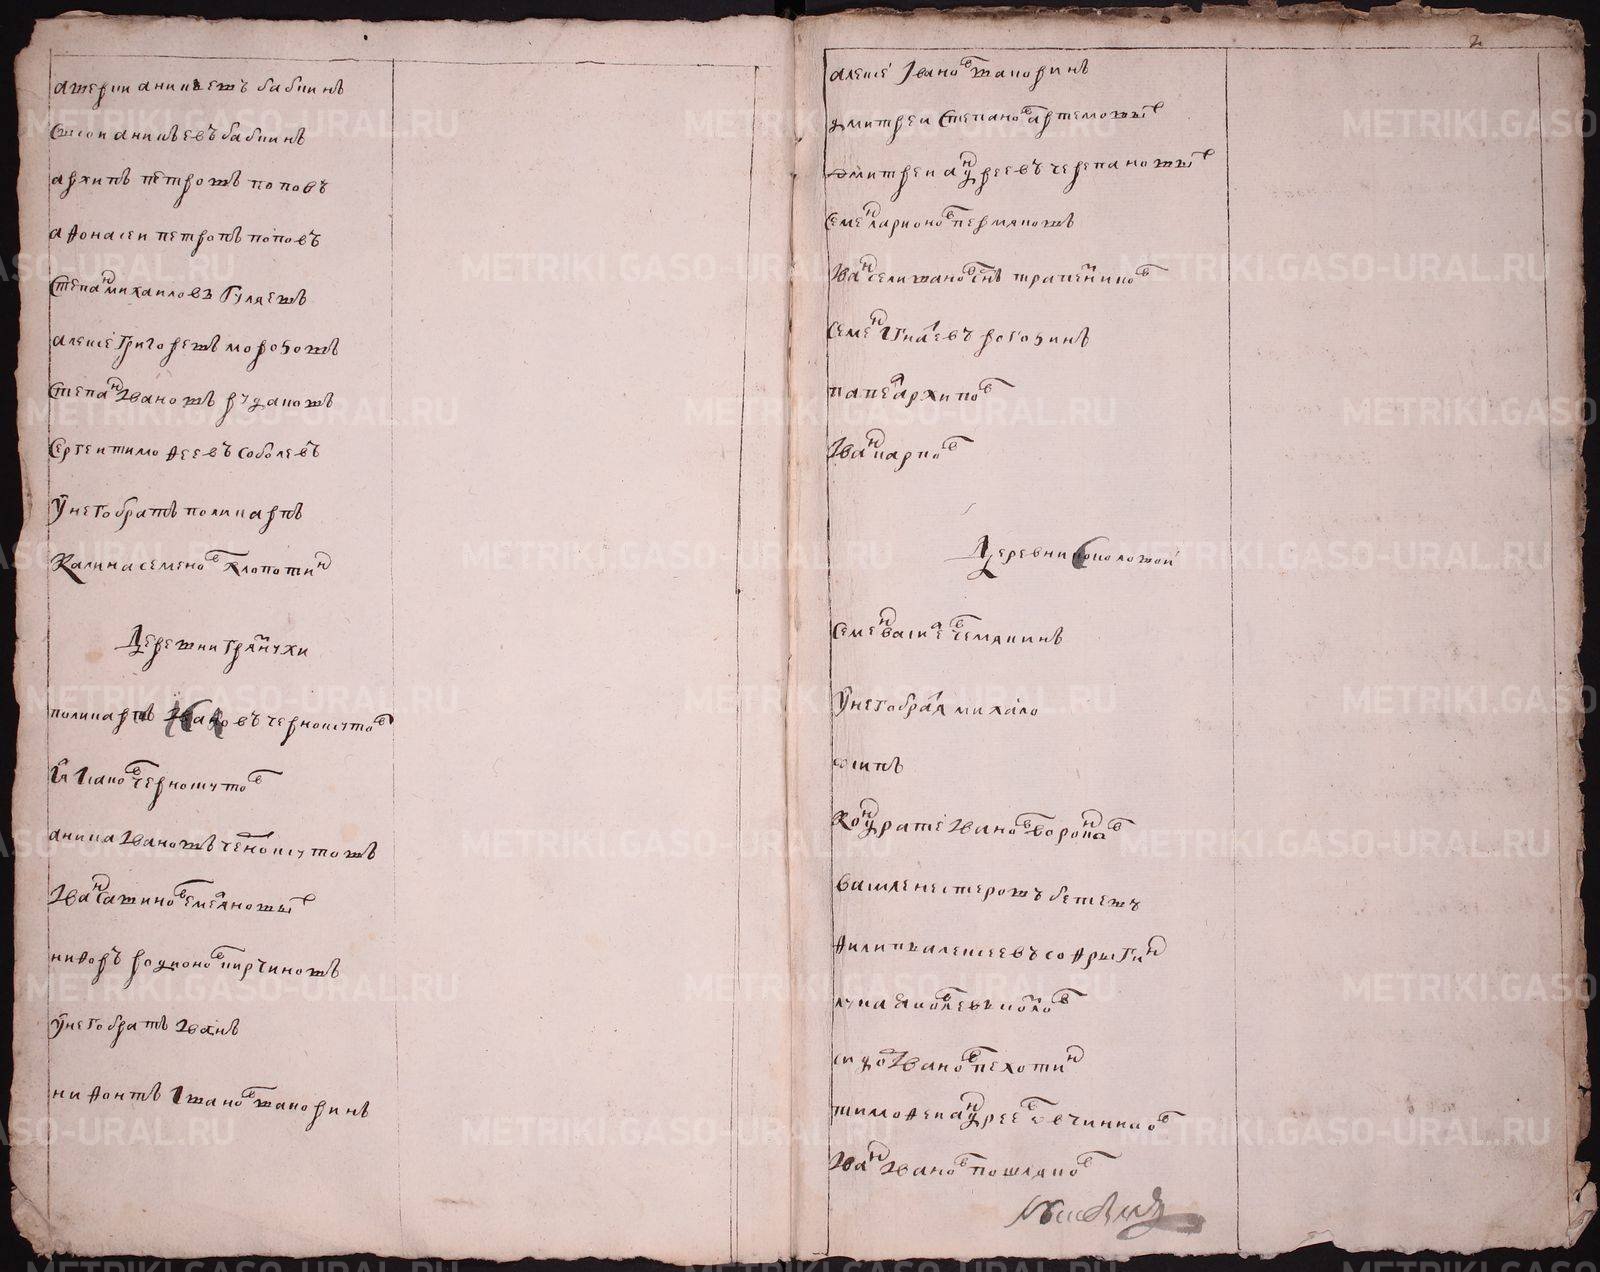 аверки аникиевъ бабкинъ
Сысои аникиевъ бабкинъ
архипъ петровъ поповъ
афонасеи петровъ поповъ
Степан михаиловъ Гуляевъ
алексе Григоревъ морозовъ
Степан Иванов рудаковъ
Сергеи тимофеевъ соболевъ
У него братъ поликарпъ
Калина семенов клопотин
Деревни Грянухи
поликарпъ Ивановъ черноскутов
Иванов черноскутов
аника Ивановъ черноскутовъ
Иван савинов емеляновых
никифоръ родионов кирчиковъ
У него братъ Иванъ
нифонтъ Иванов вакоринъ
2
алексе Иванов вакоринъ
дмитреи Степанов артемовых
дмитреи андреевъ черепановых
Семен ларионов пермяковъ
Иван селиванов снъ трапезников
Семен Игнатевъ рогозинъ
павел архипов
Иван карпов
Деревни Соколовои
Семен василев чемякинъ
У него братя михаило
осипъ
Кондрате Иванов воронков
василеи нестеровъ бетевъ
филипъ алексеевъ софрыгин
лука яковлевъ
сидор Иванов пехотин
тимофеи андреев овчинников
Иван Иванов пошляков